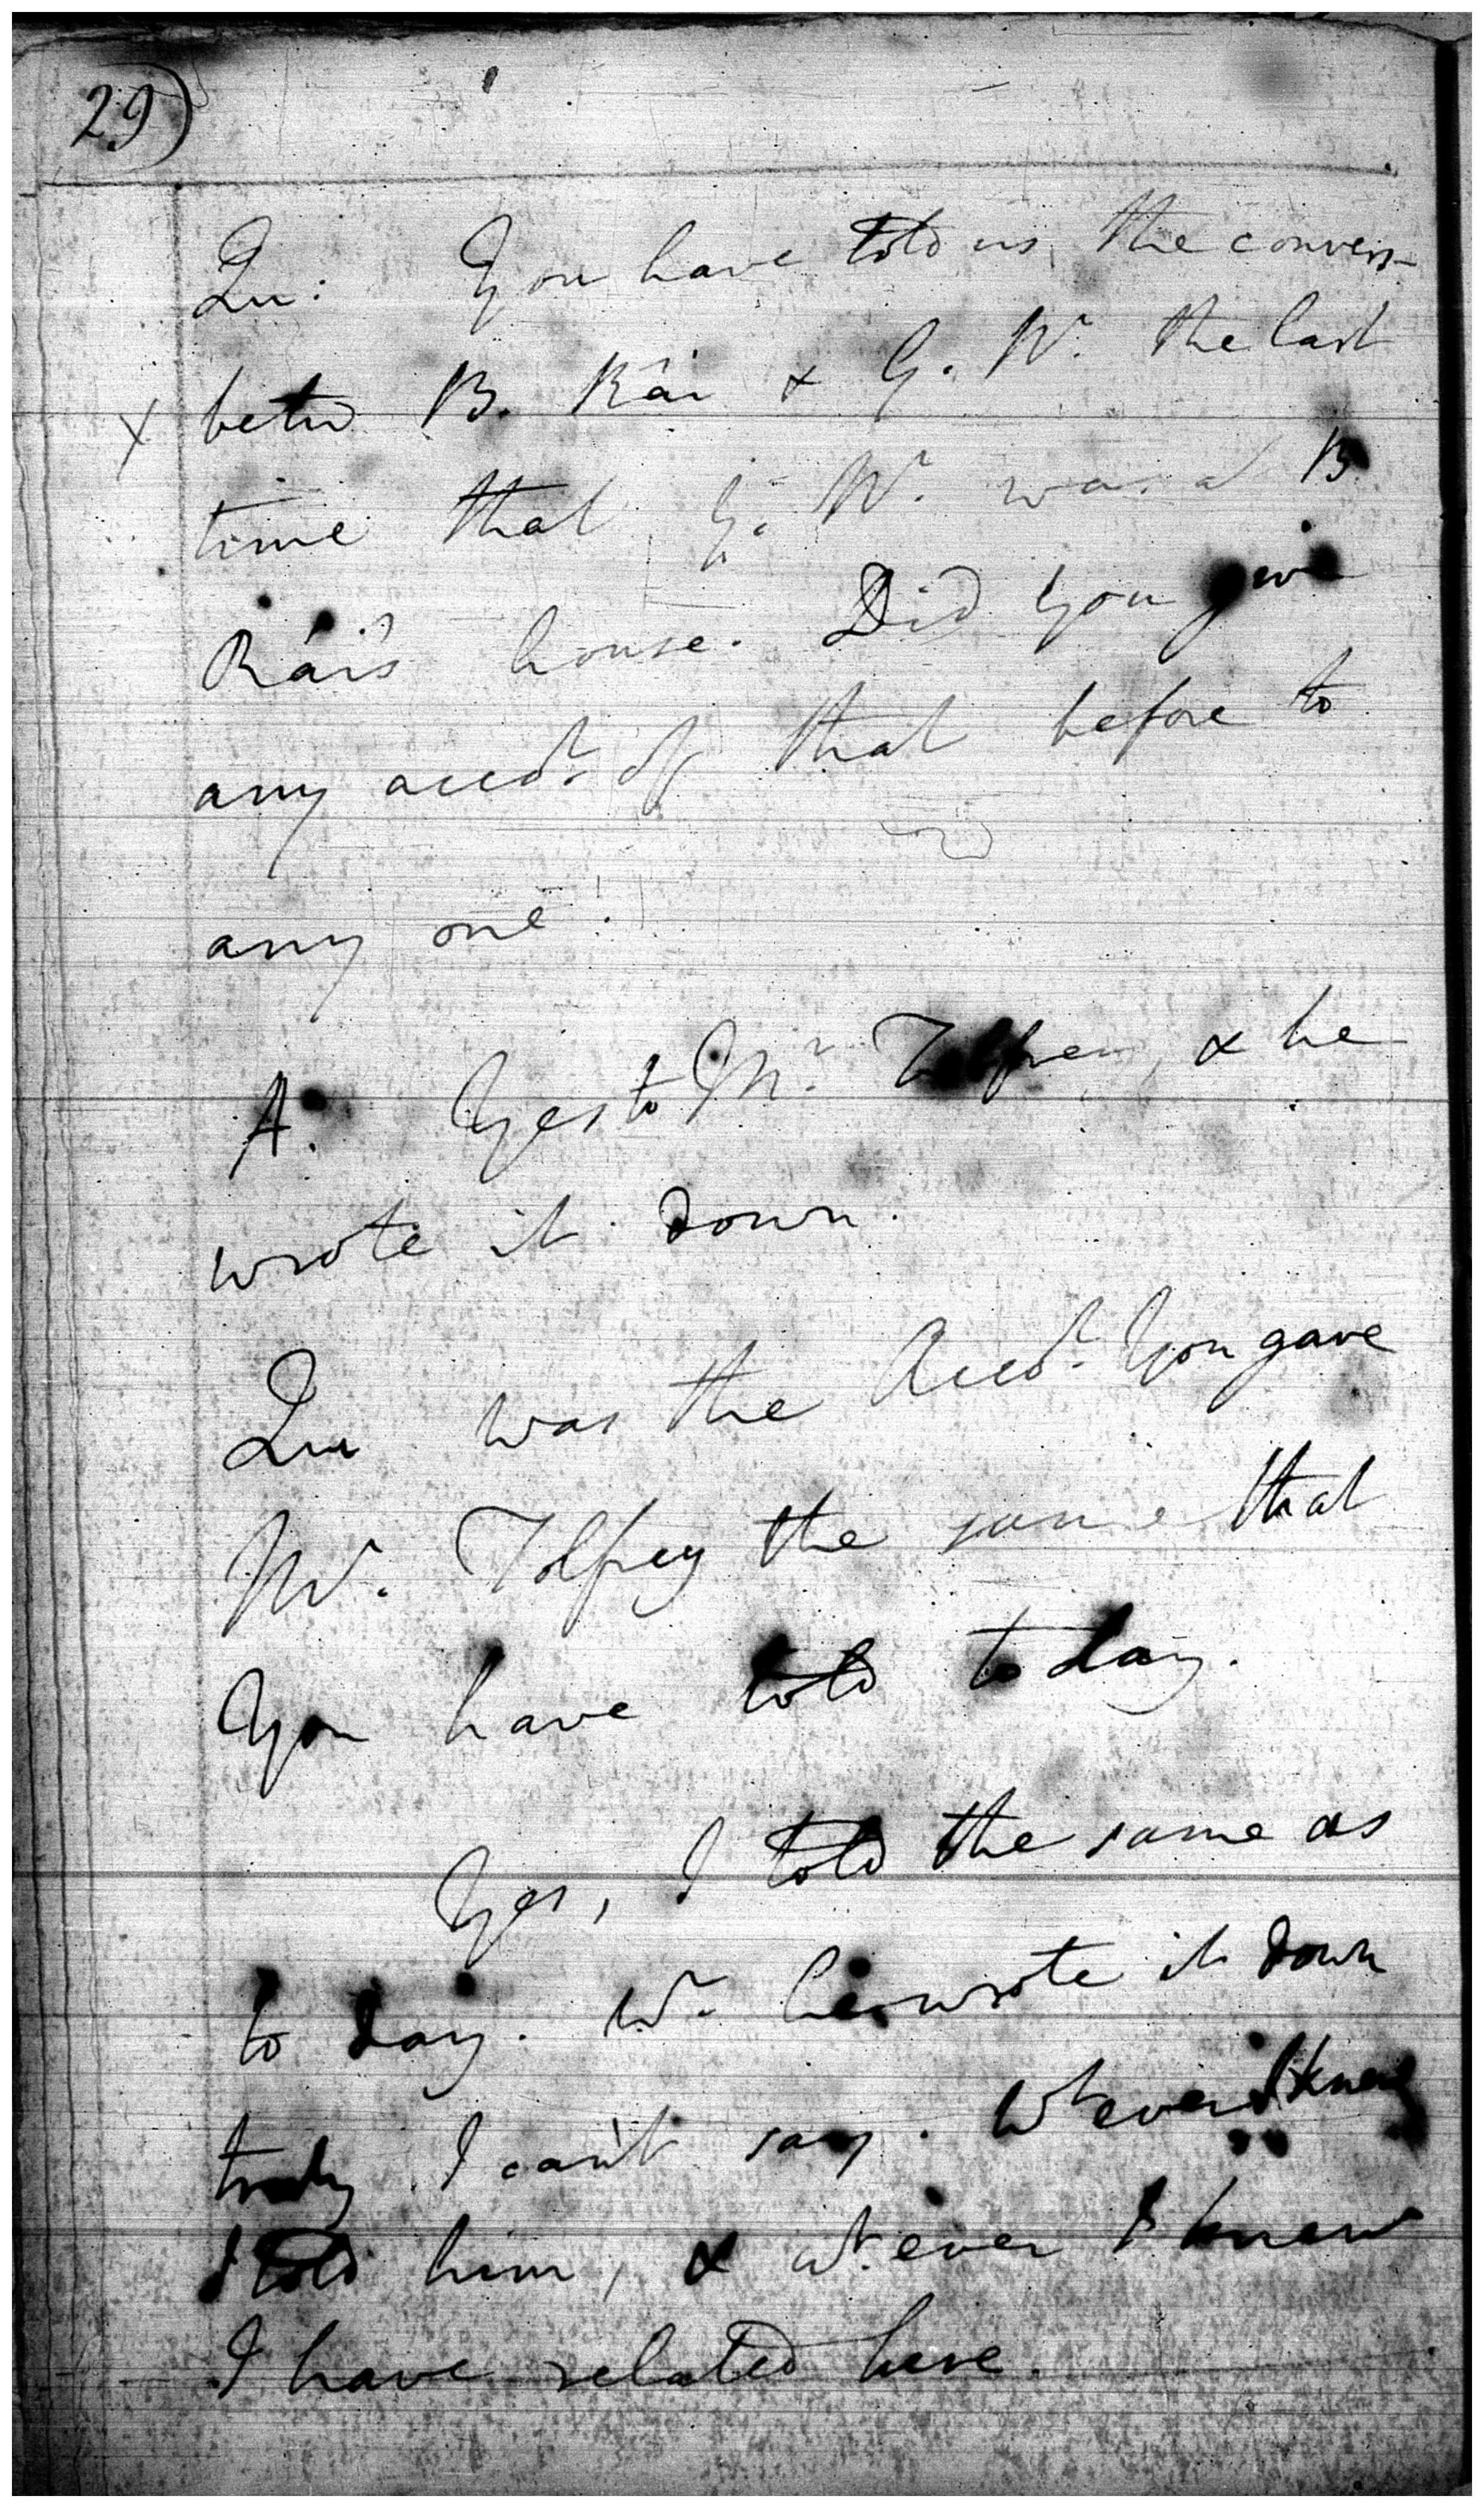 29)
Qu: You have told us the convers-
x betw B. Râi & G. W. the last
time that G. W. was at B
Rái's house. Did you give
any acco.t of that before to
any one.
A. Yes to Mr Tolfrey, & he
wrote it down.
Qu was the Acco.t You gave
Mr. Tolfrey the same that
You have told to day.
Yes, I told the same as
to day. Wr. he wrote it down
truly I can't say. Wtever I knew
I told him, & wt. ever I knew
I have related here.